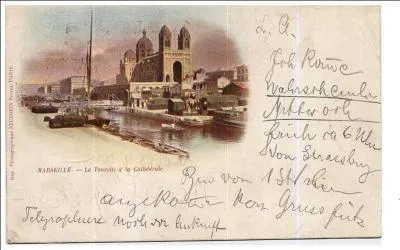 L. A.
Ich komme
wahrscheinlich
Mittwoch
früh ca 6 Uhr
von Strassburg
Bin von
angekommen Gruss Fritz
Telegraphiere noch vor Ankunft
MARSEILLE. — La Tourette & la Cathédrale
Imp. Photographique NEURDEIN Frères, PARIS.